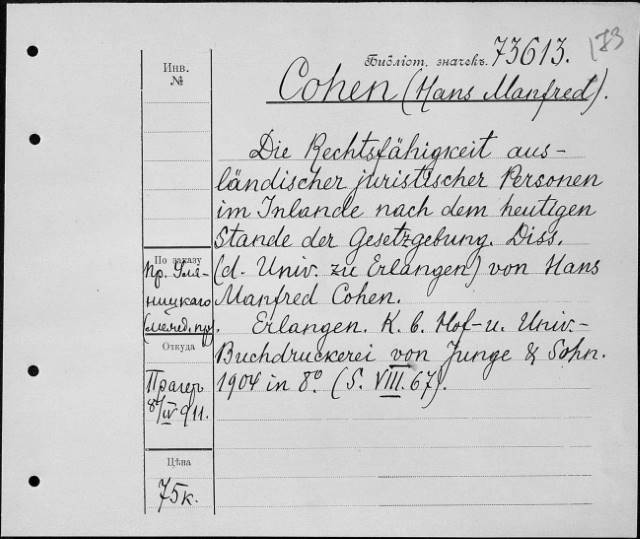 173
Библіот. значекъ. 73613.
Инв.
№
Cohen (Hans Manfred).
Die Rechtsfähigkeit aus-
ländischer juristischer Personen
im Inlande nach dem heutigen
Stande der Gesetzgebung. Diss.
(d. Univ. zu Erlangen) von Hans
Manfred Cohen.
Erlangen. K. b. Hof- u. Univ.-
Buchdruckerei von Junge & Sohn.
1904 in 8º. (S. VIII. 67).
По заказу
Пр. Уля-
ницкаго
Откуда
Прагеръ
8/IV 911.
Цѣна
75 к.